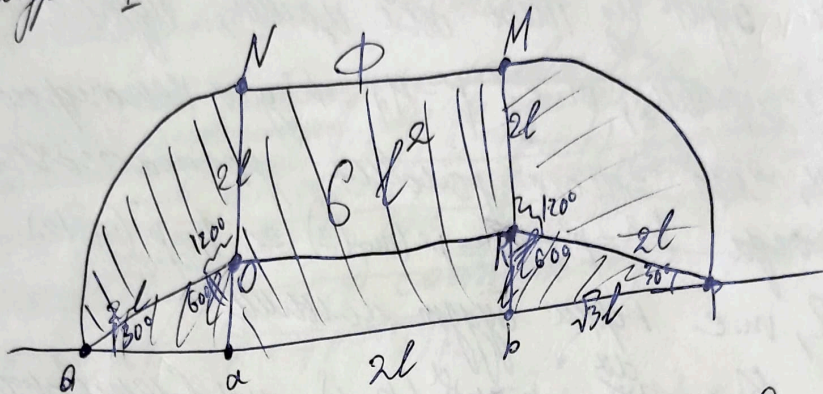 N
Ф
M
2l
2l
6l²
120°
120°
O
K
2l
2l
60°
60°
30°
30°
l
√3l
Q
a
2l
b